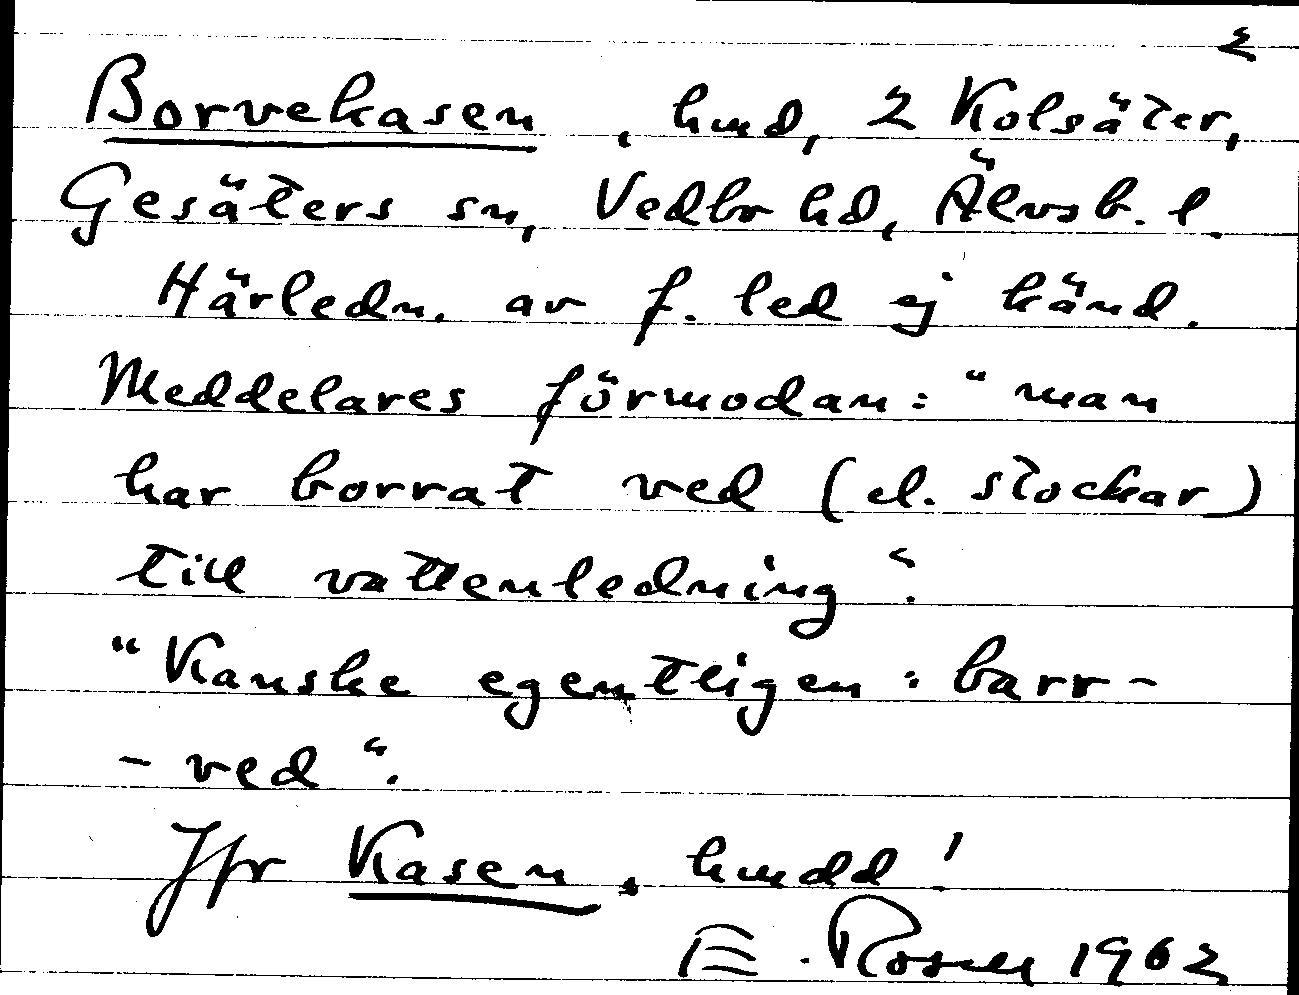 2
Borvekasen, hmd, 2 Kolsäter,
Gesäters sn, Vedbo hd, Älvsb. l.
Härledn. av f. led ej känd.
Meddelares förmodan: "man
har borrat ved (el. stockar)
till vattenledning".
"Kanske egentligen: barr-
-ved".
Jfr Kasen, hmdd!
E. Rosell 1962